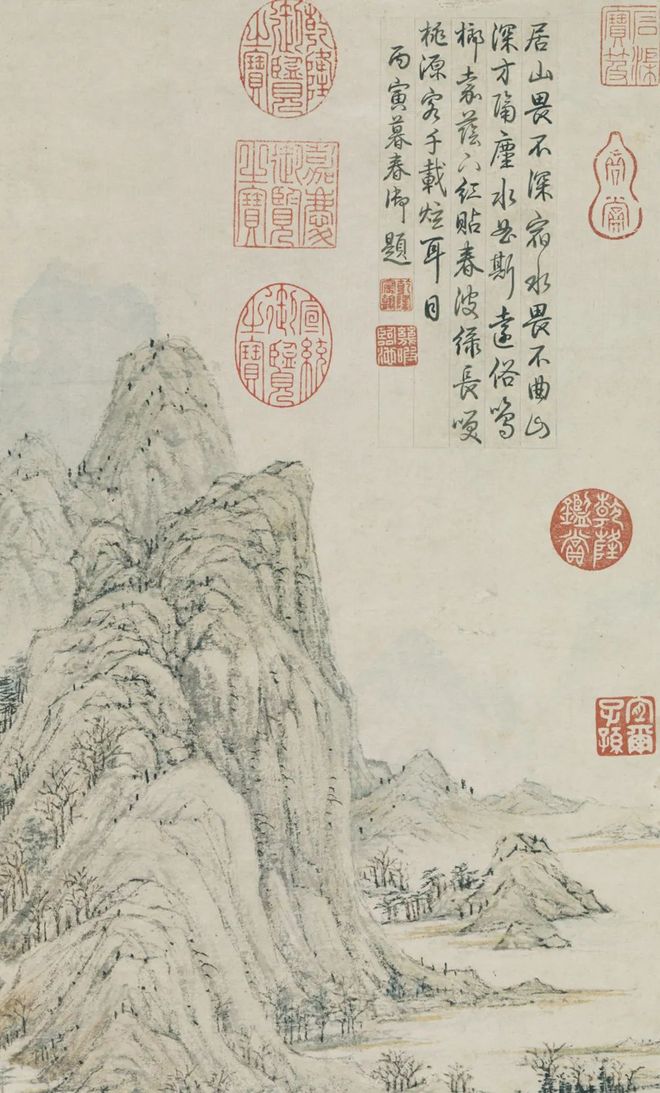 石渠寶笈
居山畏不深宿水畏不曲山
深方隔塵水曲斯遠俗鳴
榔嘉蔭下紅貼春波綠長咲
桃源客千載炫耳目
丙寅暮春御題
乾隆宸翰
幾暇臨池
乾隆御覽之寶
嘉慶御覽之寶
宣統御覽之寶
乾隆鑑賞
宜爾子孫